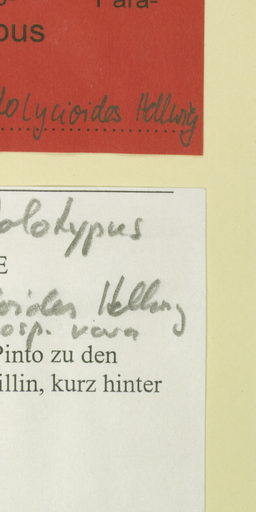 Para-
pus
olycioides Hellwig
olotypus
E
oides Hellwig
osp. nova
Pinto zu den
illin, kurz hinter